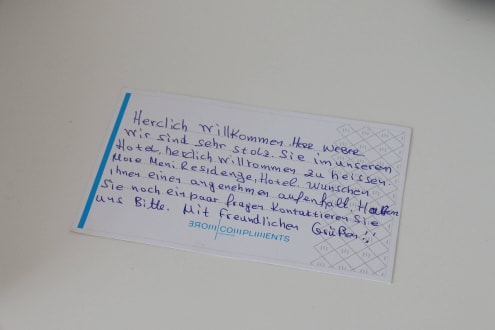 Herclich Willkommen Herr Webre
Wir sind sehr stolz. Sie im unseren
Hotel, herzlich willkommen zu heissen.
More Meni Residenge, Hotel. Wünschen
ihnen einen angenehmen aufenhalt. Haben
Sie noch ein paar fragen Kontaktieren Sie
uns Bitte. Mit freundlichen Grüßen!!
MORE COMPLIMENTS